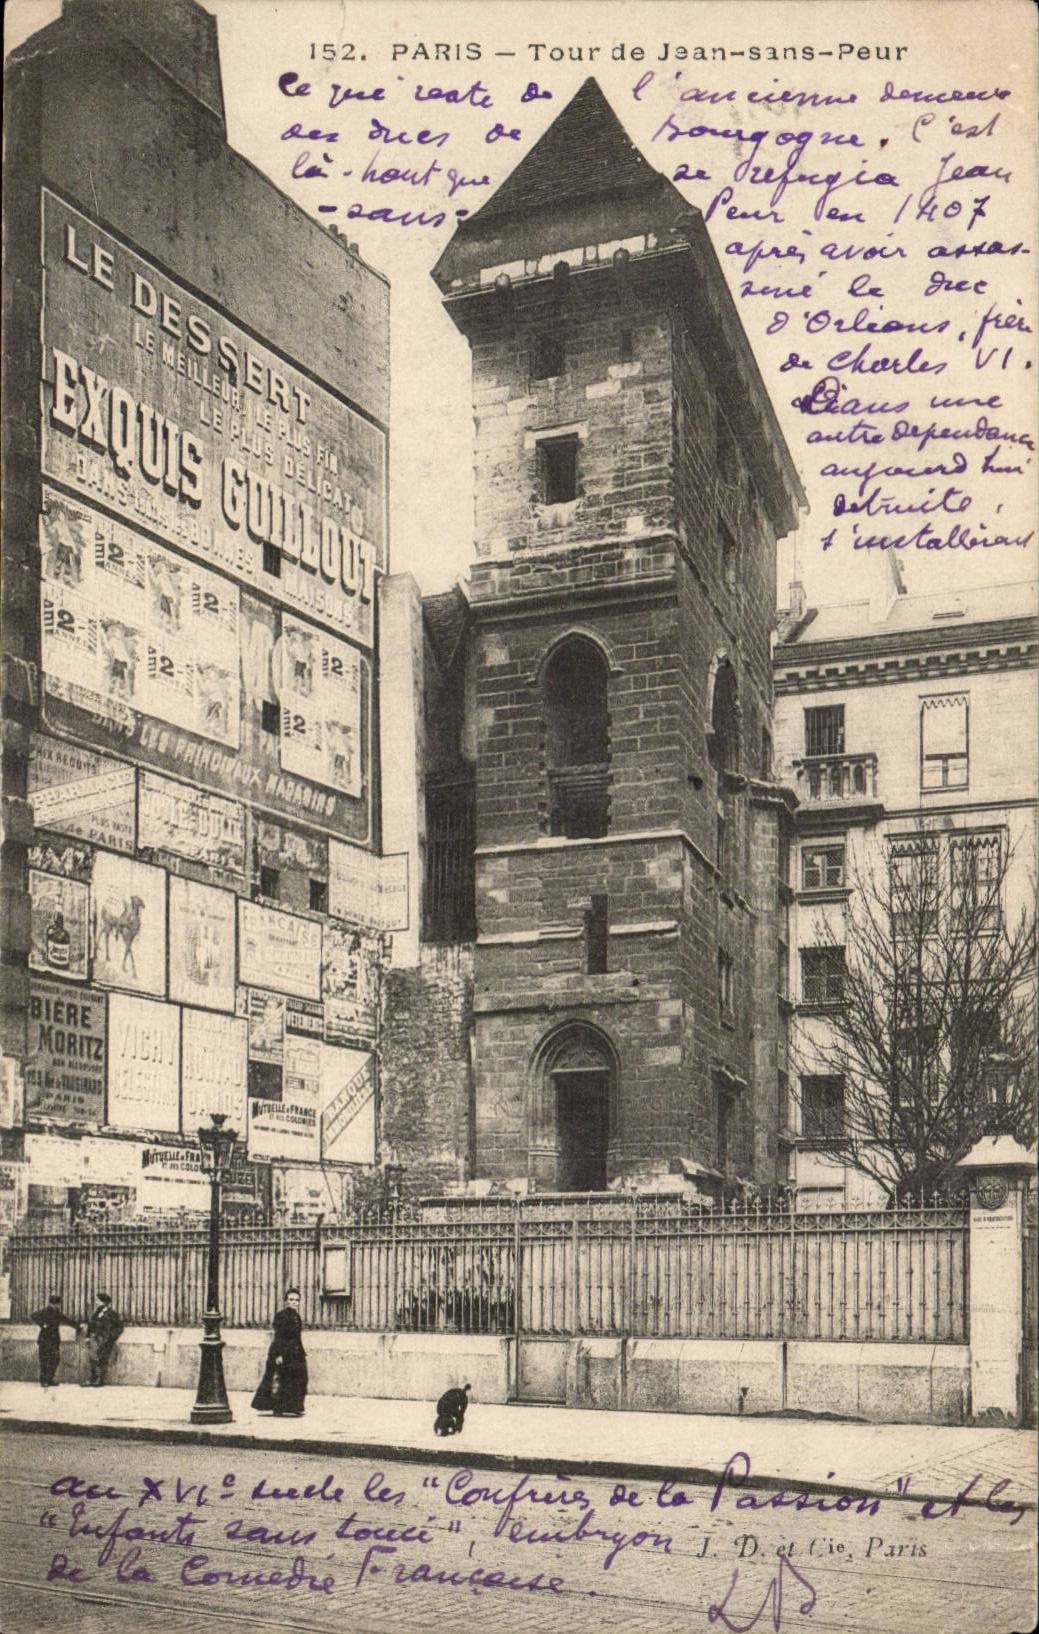 152. PARIS – Tour de Jean-sans-Peur
Ce qui reste de l'ancienne demeure
des ducs de Bourgogne. C'est
là-haut que se refugia Jean
-sans- Peur en 1407
après avoir assas-
siné le duc
d'Orléans, frère
de Charles VI.
Dans une
autre dependance
aujourd'hui
detruite,
s'installèrent
au XVIe siecle les "Confrères de la Passion" et les
"Enfants sans souci", embryon
de la Comedie Française.
J. D. et Cie, Paris
LE DESSERT
LE MEILLEUR, LE PLUS FIN
LE PLUS DÉLICAT
EXQUIS GUILLOUT
DANS TOUTES LES BONNES MAISONS
2
2
2
2
2
2
DANS LES PRINCIPAUX MAGASINS
PRIX REDUITS
PHARMACIE
PLUS VASTE
de PARIS
FRANÇAISE
BIÈRE
MORITZ
PARIS
VICHY
CELESTINS
MUTUELLE de FRANCE
ET DES COLONIES
MUTUELLE de FRA
ET DES COLO
SUZE